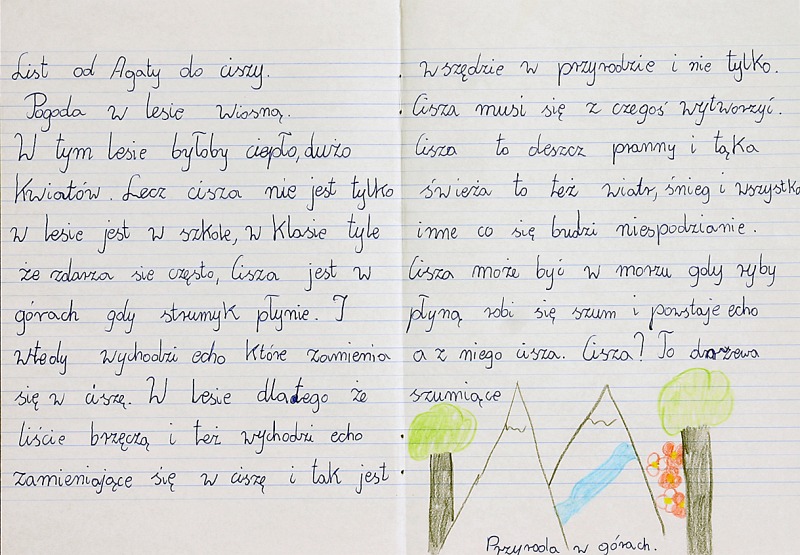 List od Agaty do ciszy.
Pogoda w lesie wiosną.
W tym lesie byłoby ciepło, dużo
kwiatów. Lecz cisza nie jest tylko
w lesie jest w szkole, w klasie tyle
że zdarza sie często, Cisza jest w
górach gdy strumyk płynie. I
wtedy wychodzi echo które zamienia
się w ciszę. W lesie dlatego że
liście brzęczą i też wychodzi echo
zamieniające się w ciszę i tak jest
wszędzie w przyrodzie i nie tylko.
Cisza musi się z czegoś wytworzyć.
Cisza to deszcz pranny i tąka
świeża to też wiatr, śnieg i wszystko
inne co się budzi niespodzianie.
Cisza może być w morzu gdy ryby
płyną robi się szum i powstaje echo
a z niego cisza. Cisza? To drzewa
szumiące
Przyroda w górach.